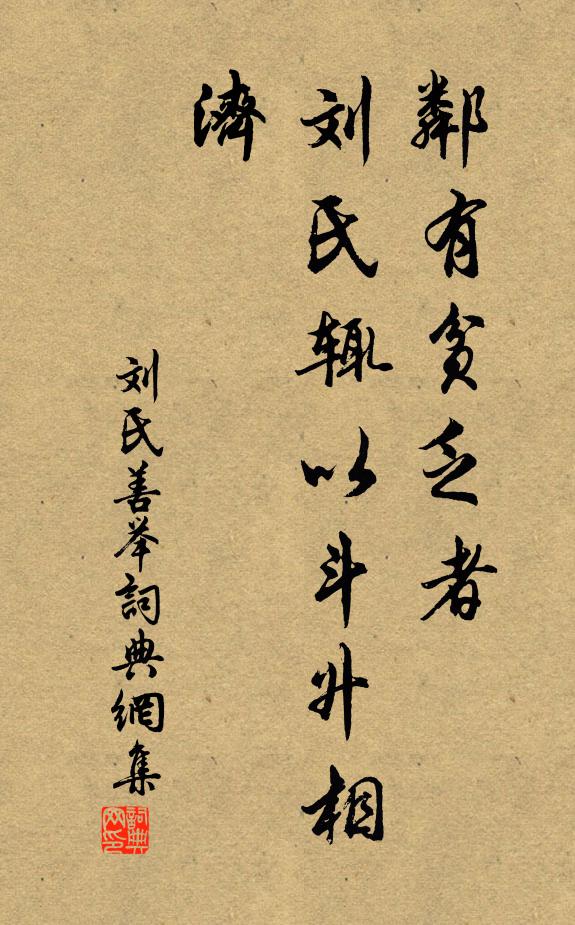 鄰有貧乏者
刘氏辄以斗升相
濟
刘氏善举詞典網集
詞典网印